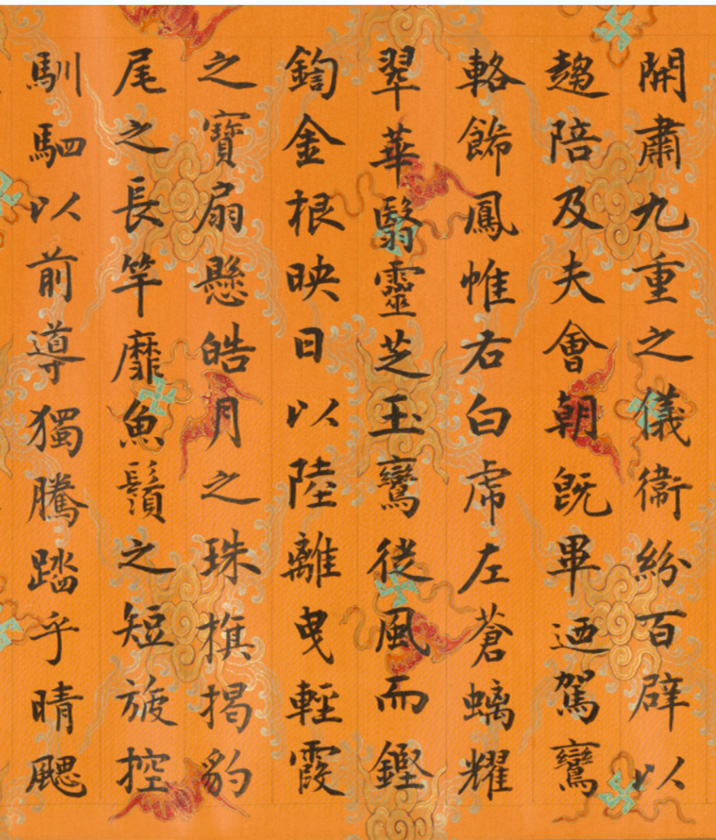 開肅九重之儀衛紛百辟以
趨陪及夫會朝既畢迺駕鸞
輅飾鳳帷右白虎左蒼螭耀
翠華翳靈芝玉鸞從風而鏗
鍧金根映日以陸離曳輕霞
之寶扇懸皓月之珠旗揭豹
尾之長竿靡魚鬚之短旍控
馴駟以前導獨騰踏乎晴颸